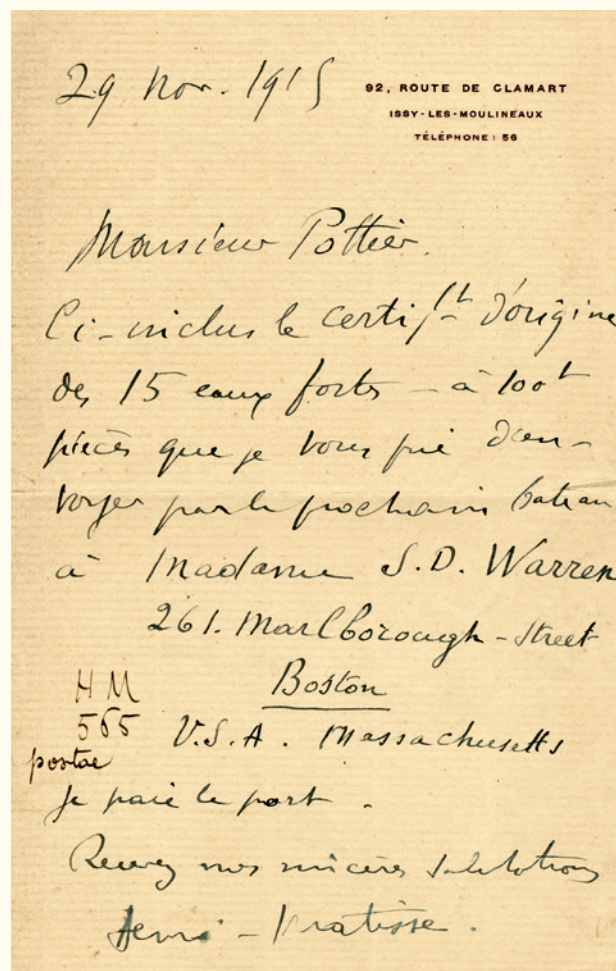 29 Nov. 1915
92, ROUTE DE CLAMART
ISSY-LES-MOULINEAUX
TÉLÉPHONE : 56
Monsieur Pottier.
Ci-inclus le certift d'origine
des 15 eaux fortes – à 100t
pièces que je vous prie d'en-
voyer par le prochain bateau
à Madame S.D. Warren
261. Marlborough-Street
Boston
HM
565
U.S.A. Massachusetts
postae
Je paie le port.
Recevez mes sincères salutations
Henri-Matisse.